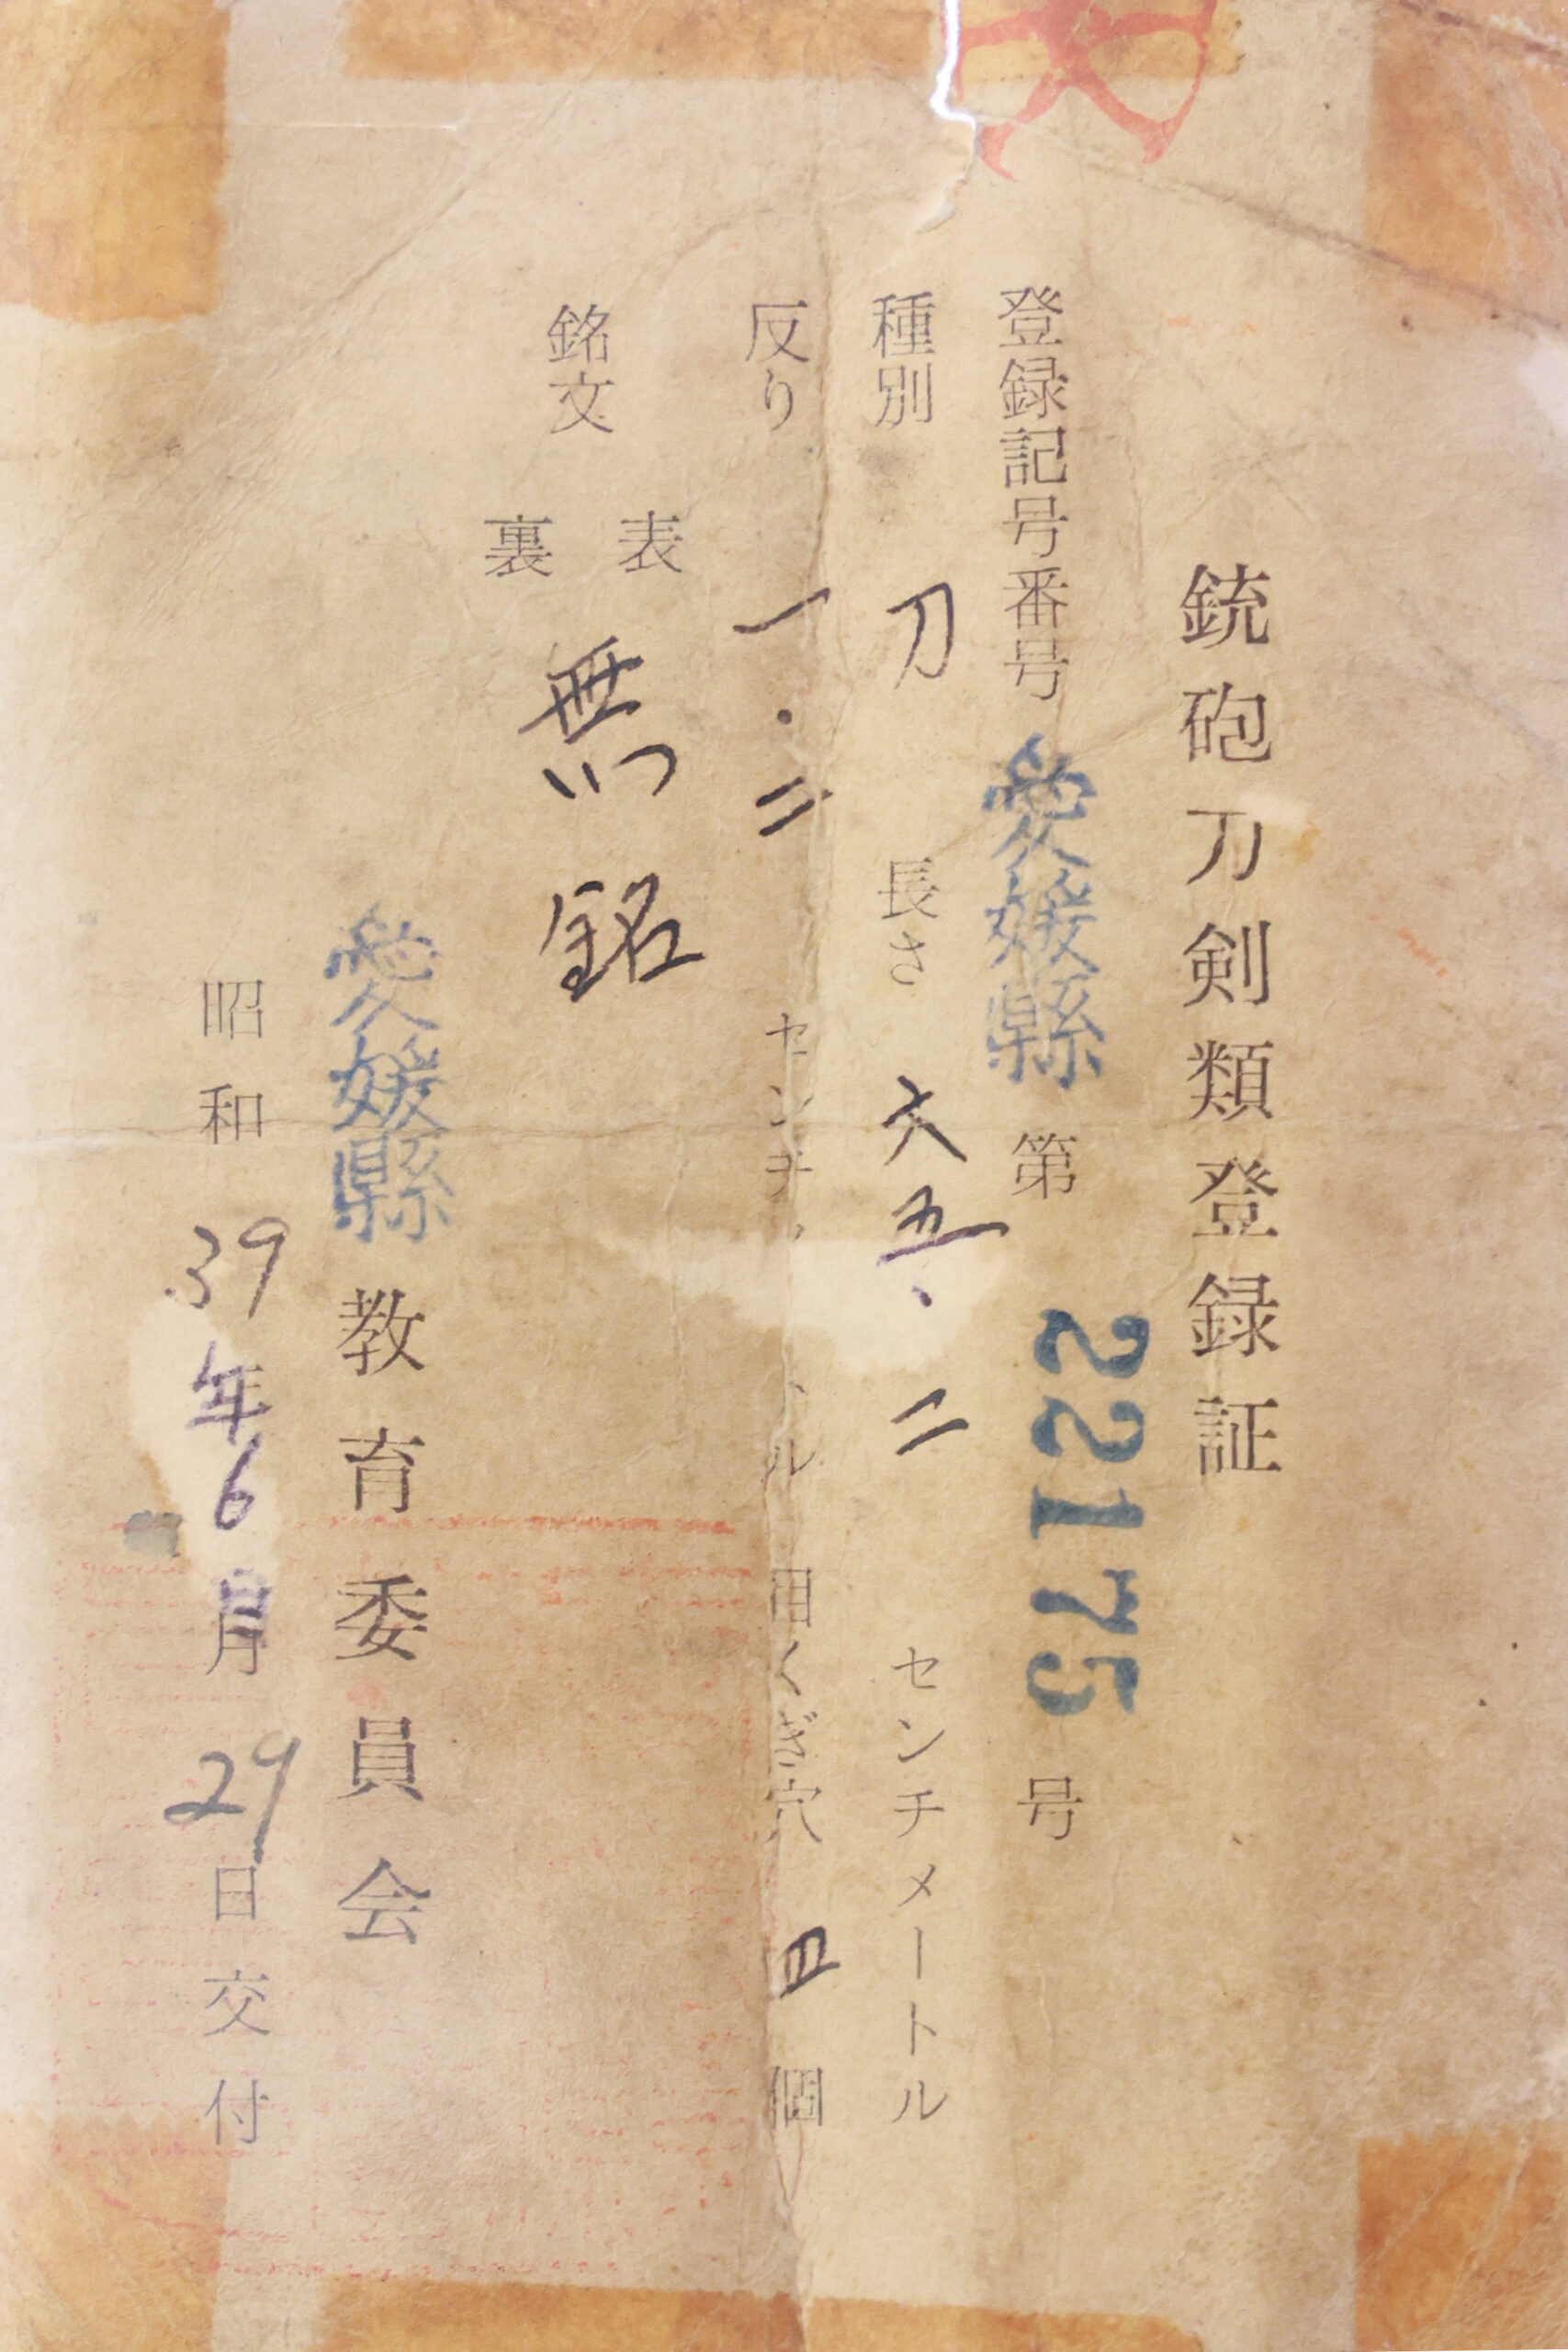 銃砲刀剣類登録証
登録記号番号 愛媛縣 第 22175 号
種別 刀 長さ 六五.二 センチメートル
反り 一.二 センチ トル 目くぎ穴 四 個
銘文 表 裏 無銘
愛媛縣 教育委員会
昭和 39 年 6 月 29 日交付